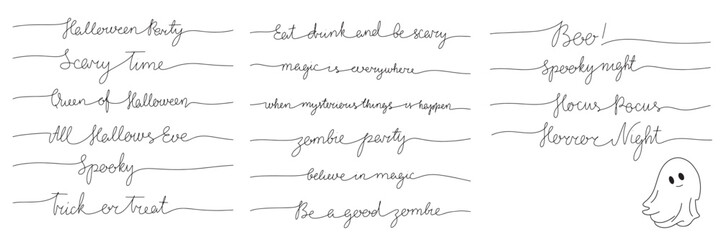 Halloween Party
Scary Time
Queen of Halloween
All Hallows Eve
Spooky
Trick or treat
Eat drunk and be scary
magic is everywhere
when mysterious things is happen
zombie party
believe in magic
Be a good zombie
Boo!
Spooky night
Hocus Pocus
Horror Night